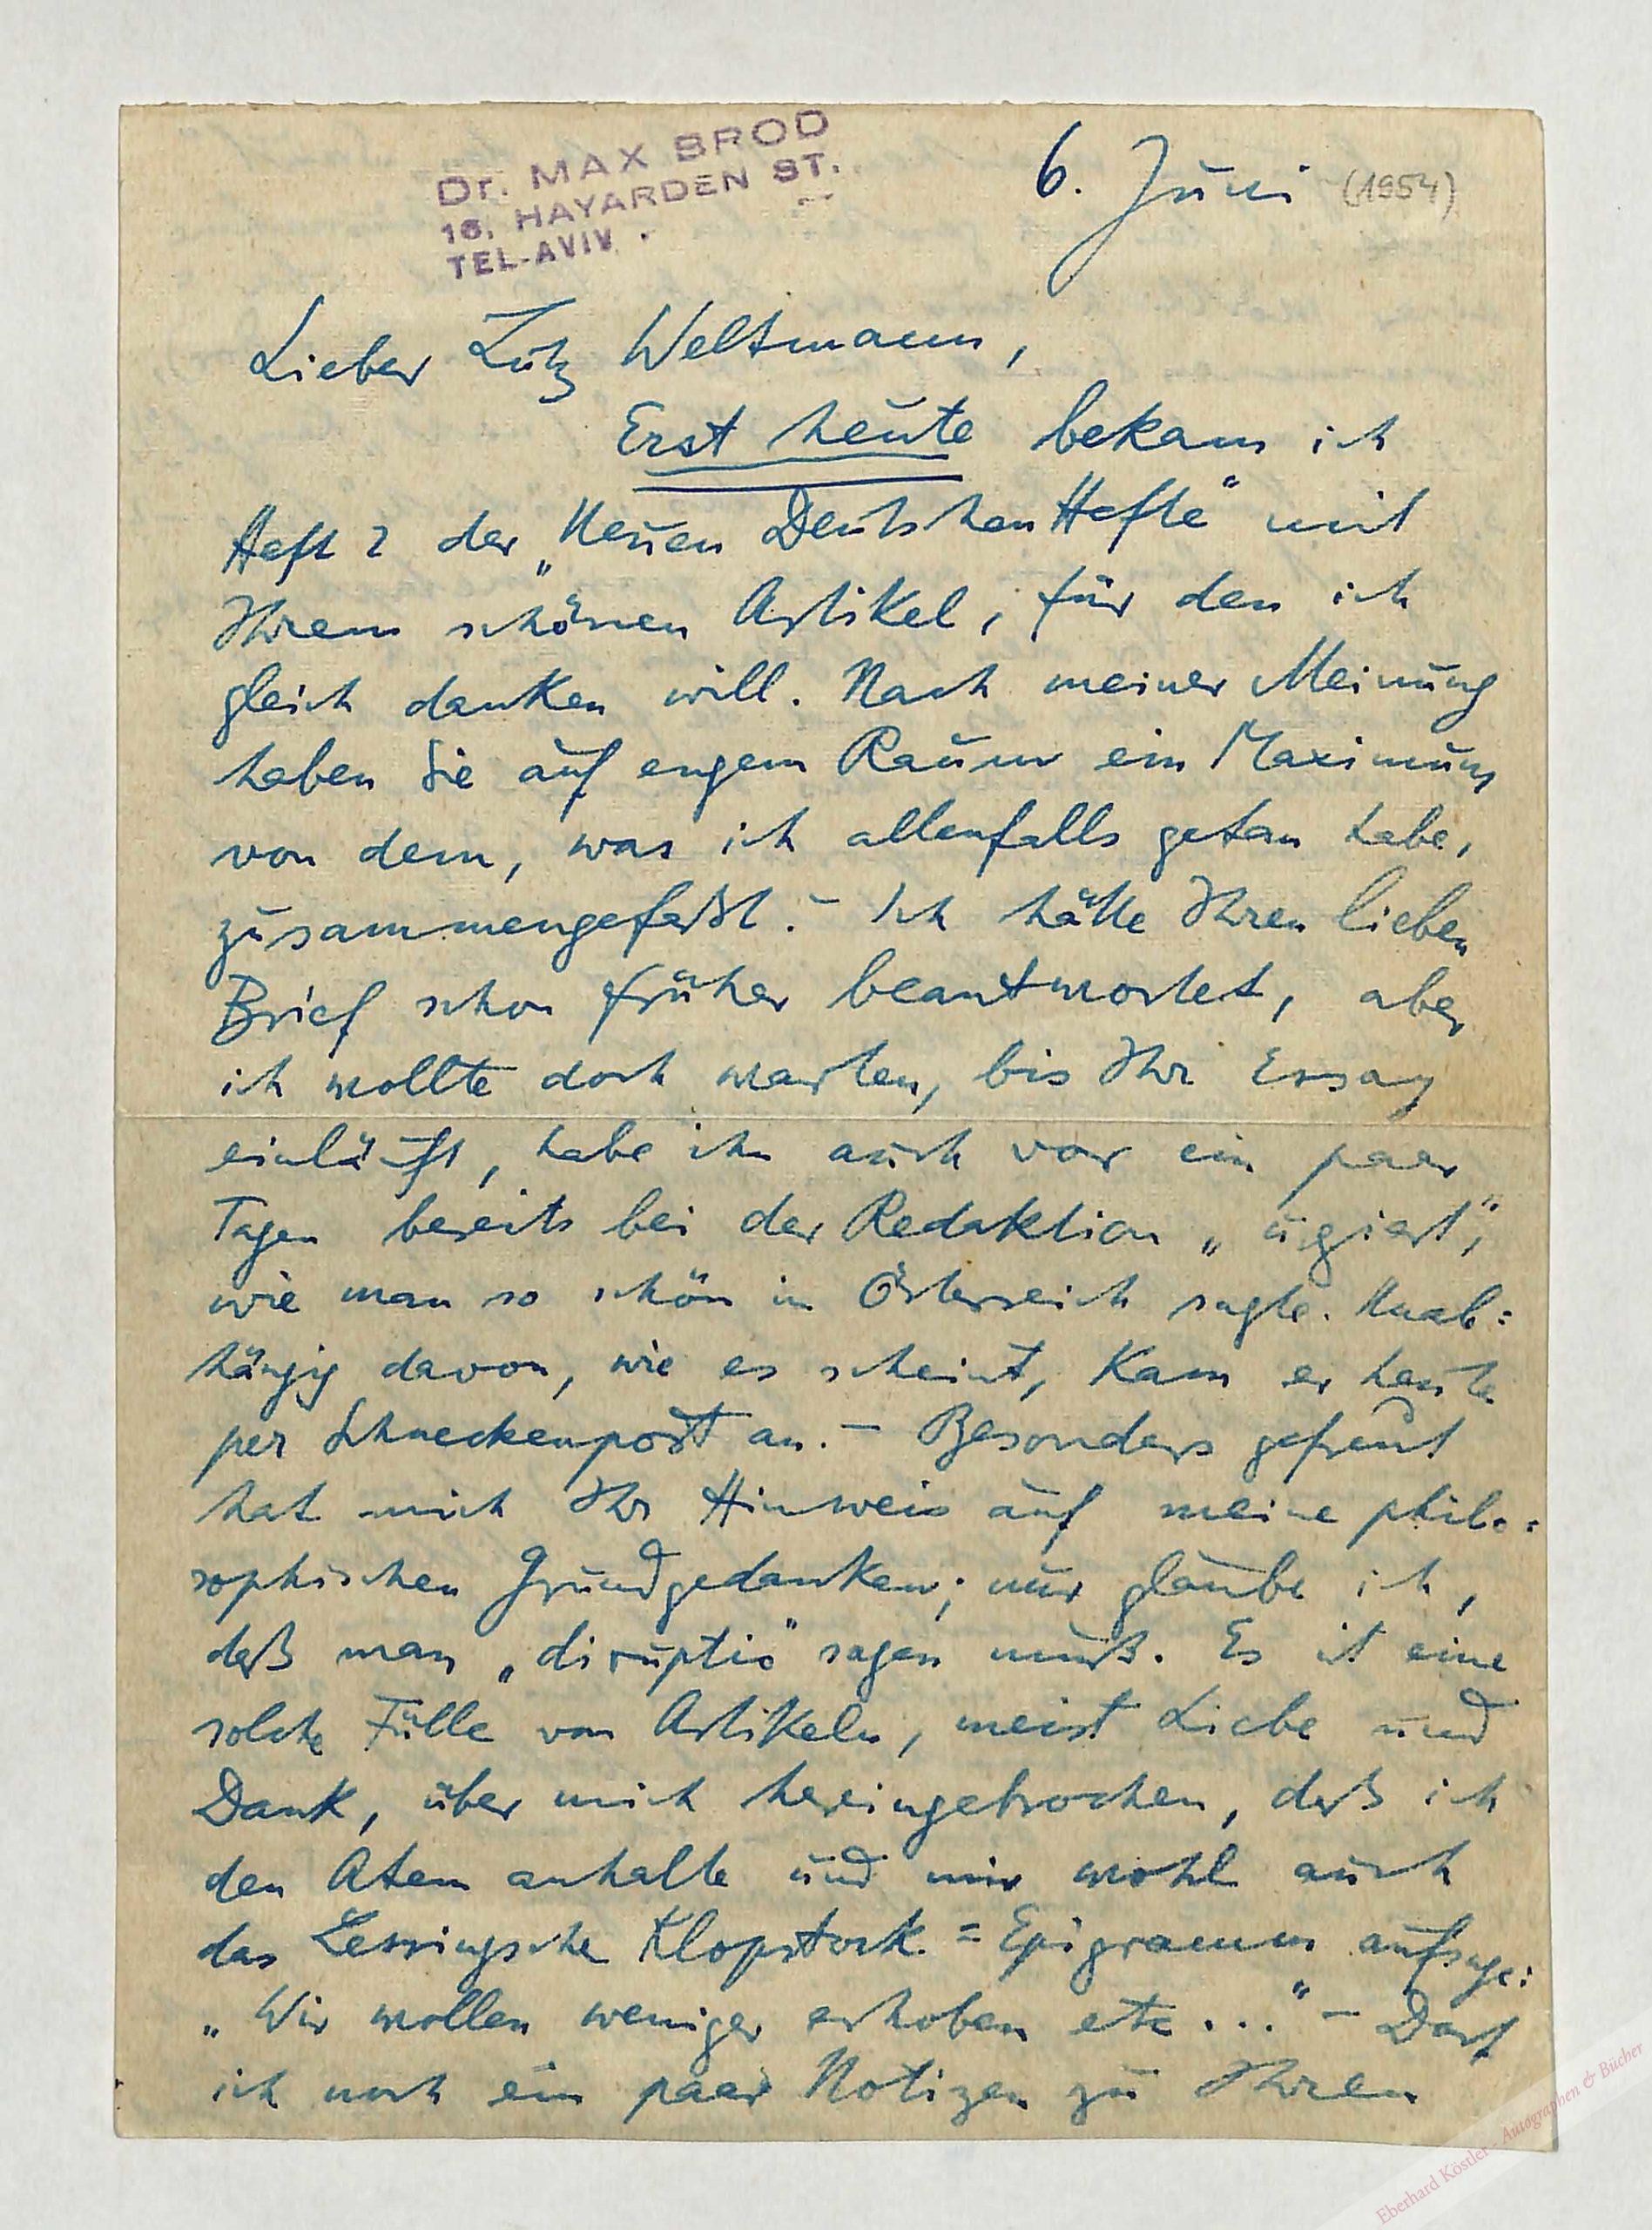 Dr. MAX BROD
16, HAYARDEN ST.
TEL-AVIV.
6. Juni (1954)
Lieber Lutz Weltmann,
Erst heute bekam ich
Heft 2 der „Neuen Deutschen Hefte“ mit
Ihrem schönen Artikel, für den ich
gleich danken will. Nach meiner Meinung
haben Sie auf engem Raum ein Maximum
von dem, was ich allenfalls getan habe,
zusammengefaßt. – Ich hätte Ihren lieben
Brief schon früher beantwortet, aber
ich wollte doch warten, bis Ihr Essay
einläuft, habe ihn auch vor ein paar
Tagen bereits bei der Redaktion „urgiert“,
wie man so schön in Österreich sagte. Unab=
hängig davon, wie es scheint, kam er heute
per Schneckenpost an. – Besonders gefreut
hat mich Ihr Hinweis auf meine philo=
sophischen Grundgedanken; nur glaube ich,
daß man „diruptio“ sagen muß. Es ist eine
solche Fülle von Artikeln, meist Liebe und
Dank, über mich hereingebrochen, daß ich
den Atem anhalte und mir wohl auch
das Lessingsche Klopstock=Epigramm aufsage:
„Wir wollen weniger erhoben etc...“ – Darf
ich noch ein paar Notizen zu Ihren
Eberhard Köstler - Autographen & Bücher